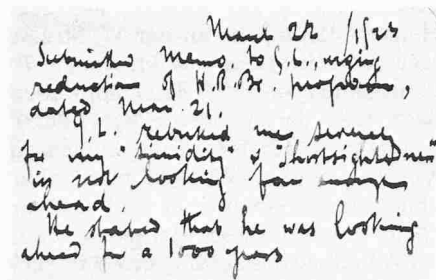 March 22 /1923
Submitted Memo. to G.L., urging
reduction of H.R.Br. proposal,
dated Mar. 21.
G L. rebuked me severely
for my "timidity" & "Shortsightedness"
in not looking far enough
ahead.
He stated that he was looking
ahead for a 1000 years